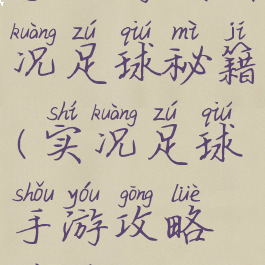 kuàng zú qiú mì jí
况足球秘籍
shí kuàng zú qiú
(实况足球
shǒu yóu gōng lüè
手游攻略